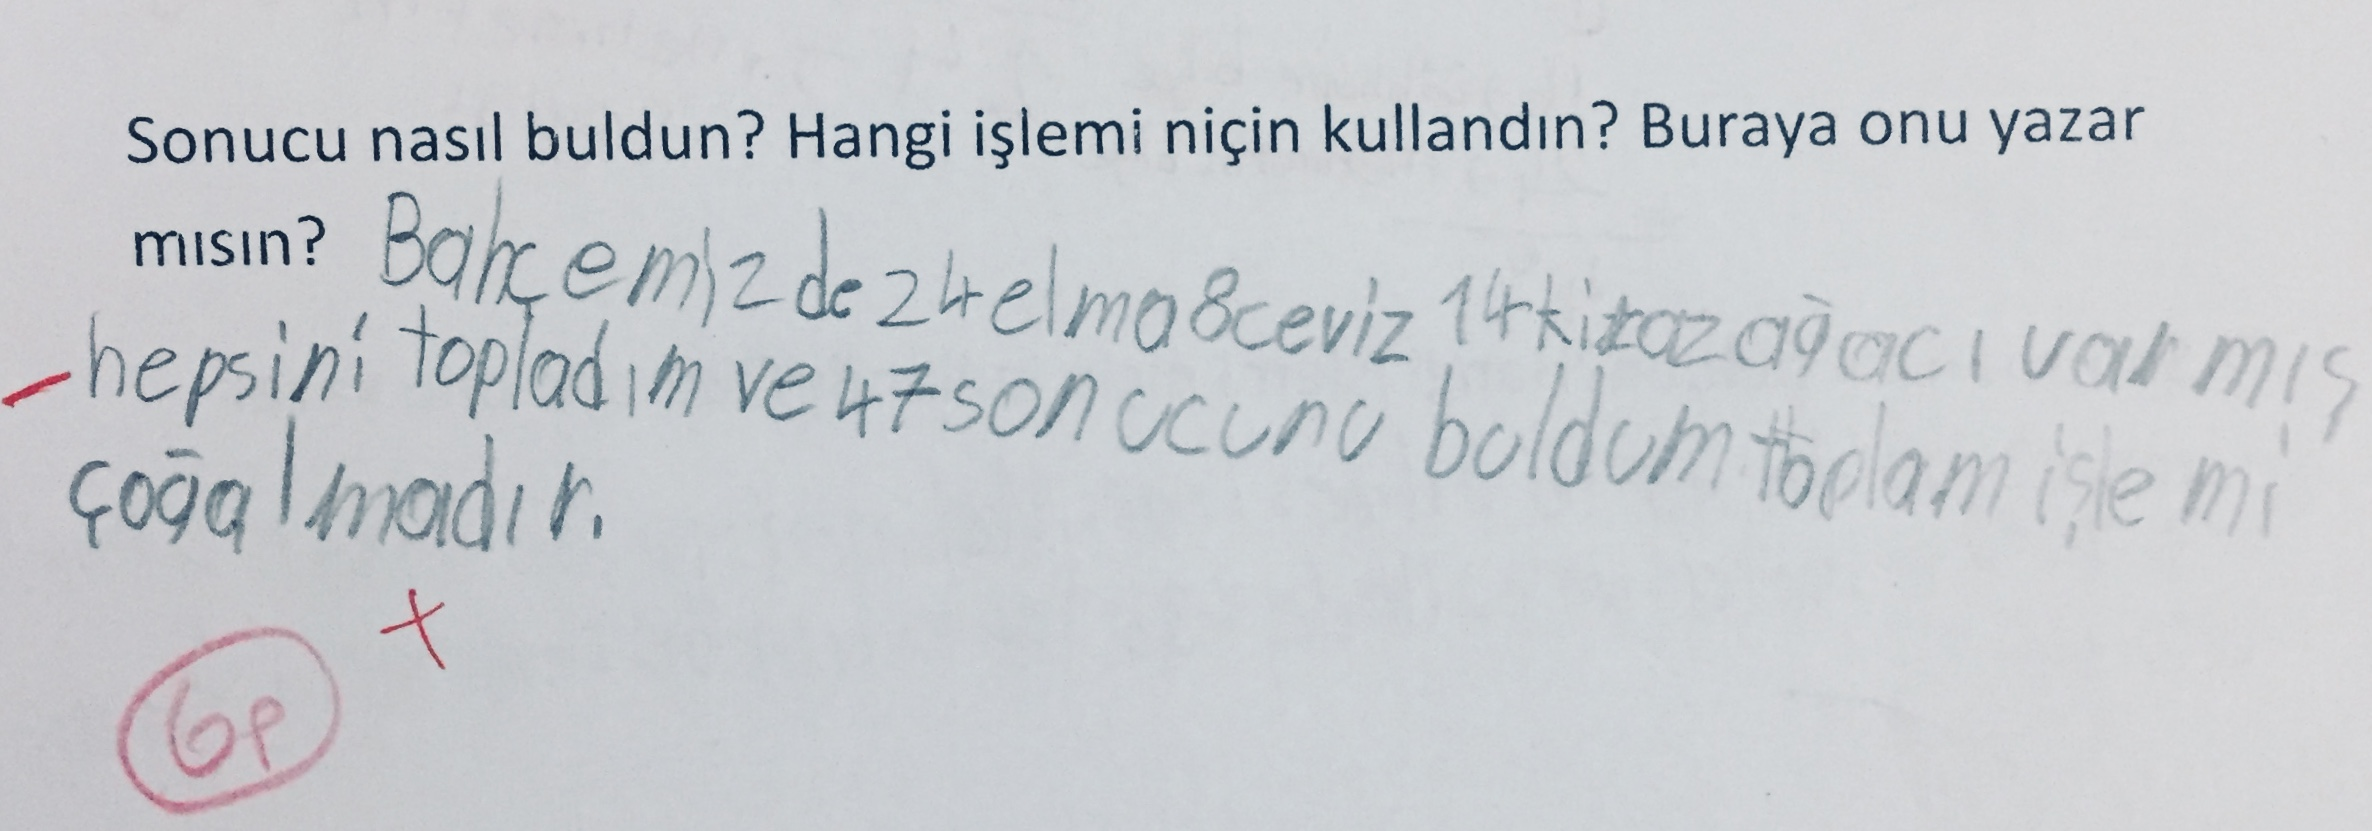 Sonucu nasıl buldun? Hangi işlemi niçin kullandın? Buraya onu yazar
mısın? Bahçemizde 24 elma 8 ceviz 14 kiraz ağacı varmış
hepsini topladım ve 47 sonucunu buldum toplam işlemi
çoğalmadır.
6p